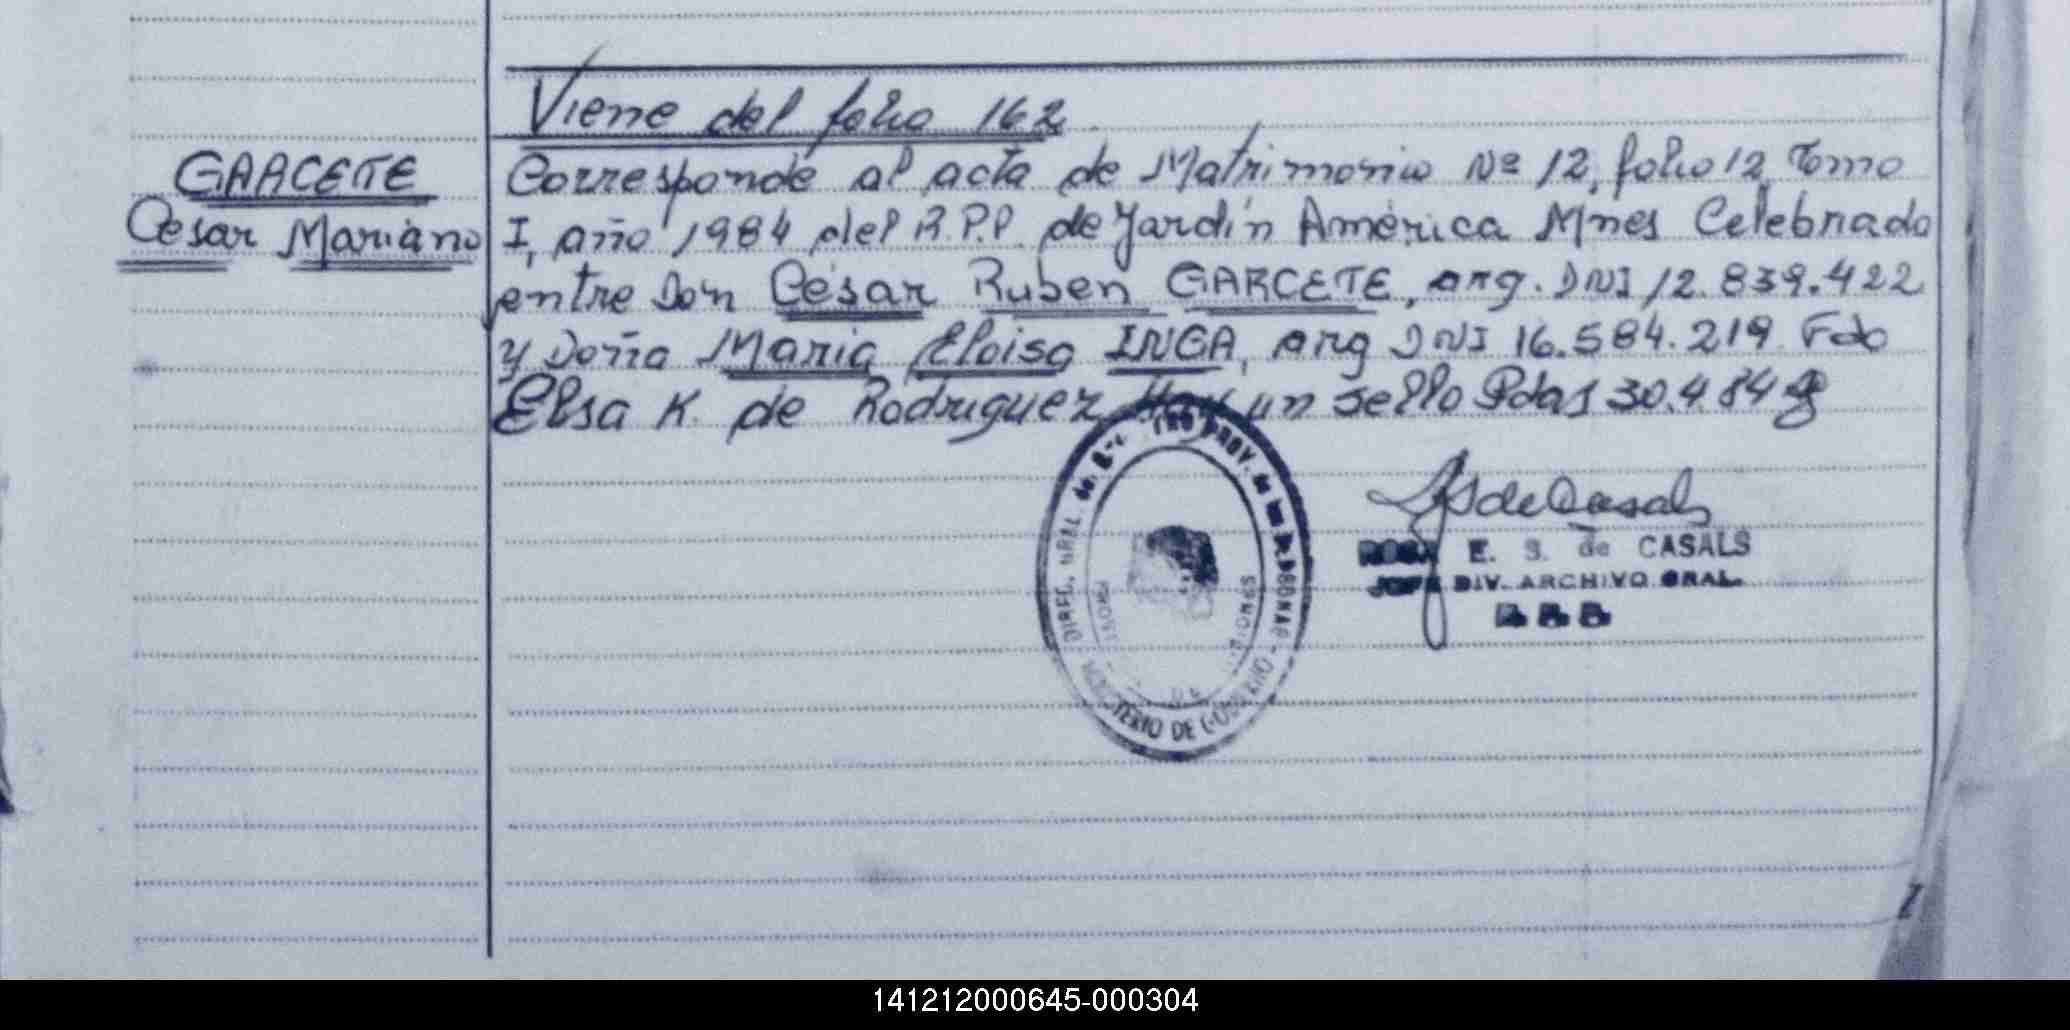 Viene del folio 162
GARCETE
Cesar Mariano
Corresponde al acta de Matrimonio Nº 12, folio 12, Tomo
I, año 1984 del R.P.P. de Jardín América Mnes Celebrado
entre Don César Ruben GARCETE, arg. DNI 12.839.422
y Doña Maria Eloisa INGA, arg DNI 16.584.219 Fdo
Elsa K. de Rodriguez Hay un sello Pdas 30.4.84
DIREC. GRAL. del REGISTRO PROV. de las PERSONAS
MINISTERIO DE GOBIERNO
MISIONES
S de Casals
ROSA E. S. de CASALS
JEFE DIV. ARCHIVO GRAL.
141212000645-000304